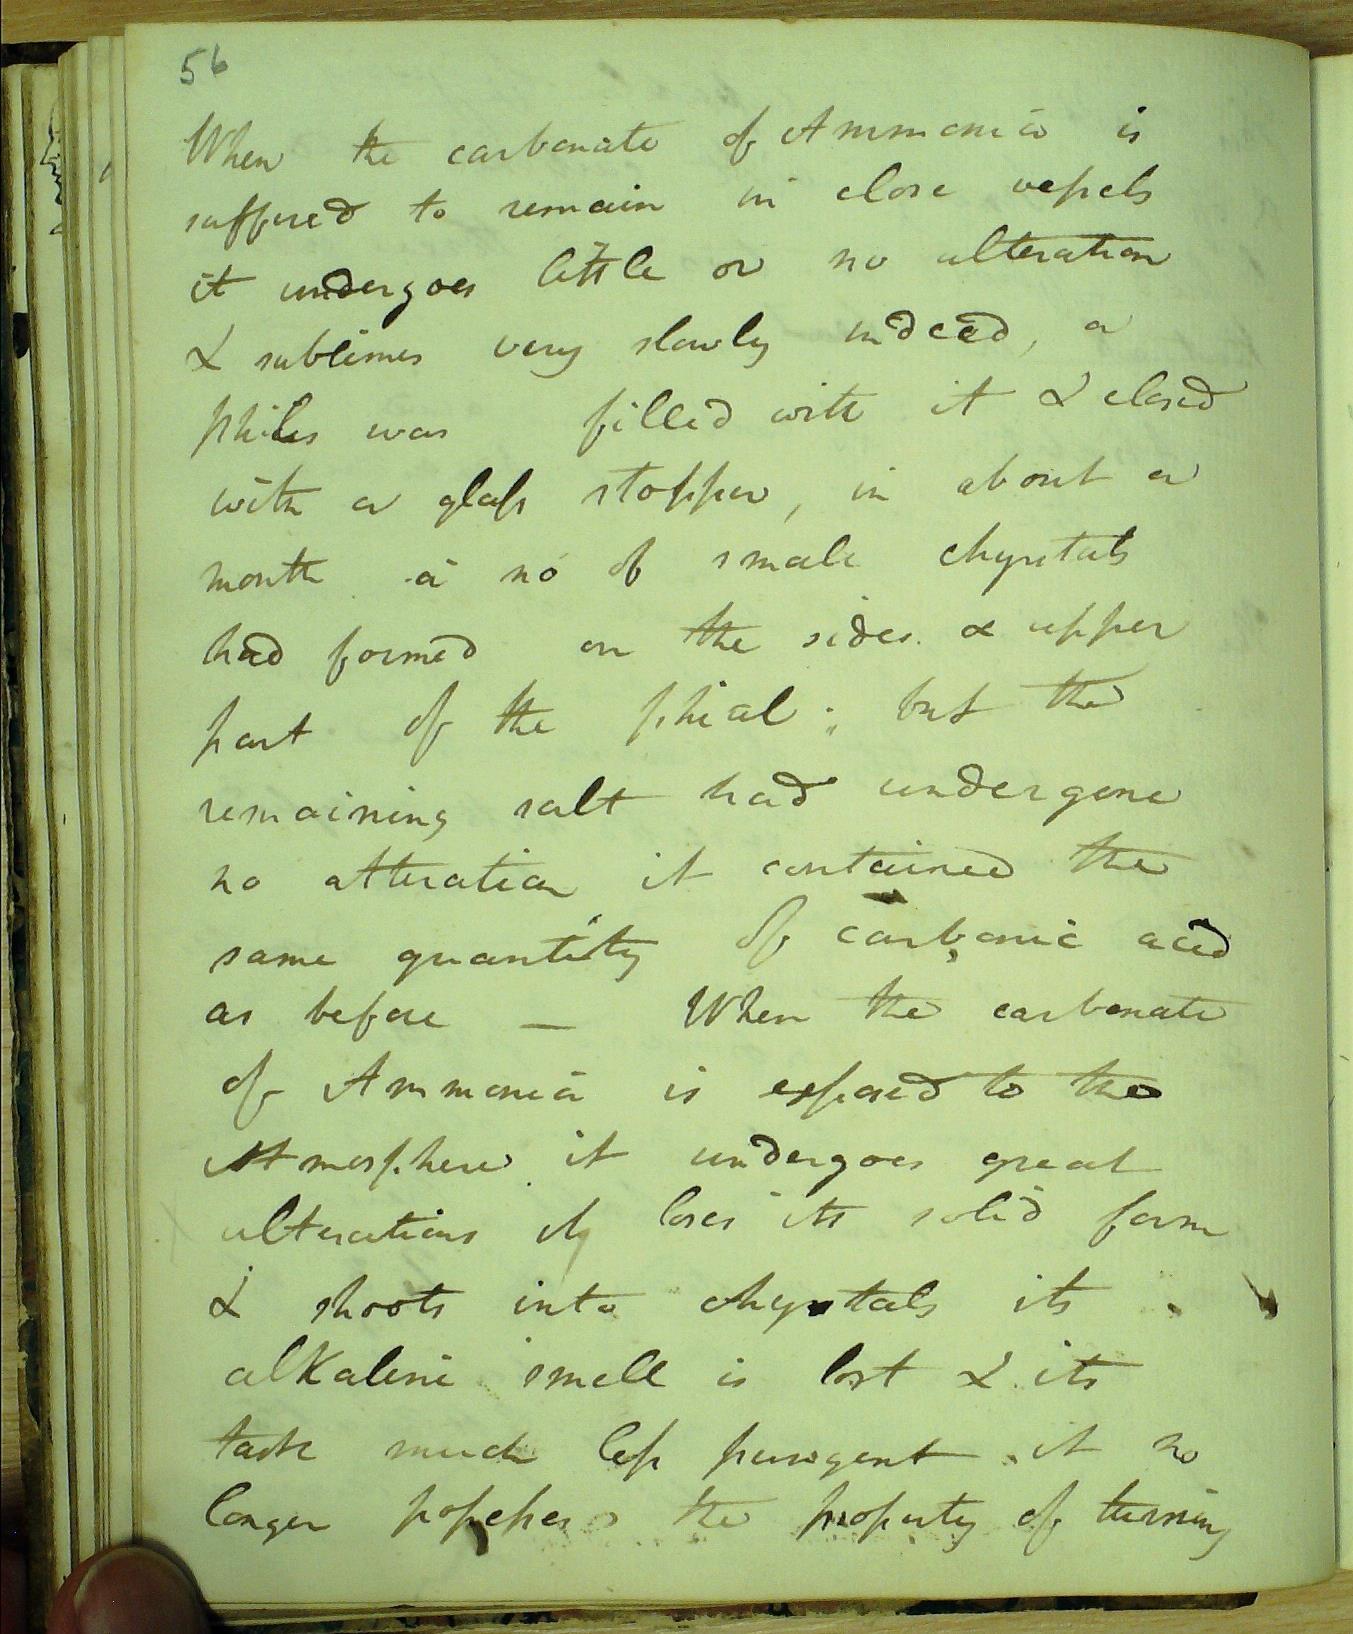 56
When the carbonate of Ammonia is
suffered to remain in close vessels
it undergoes little or no alteration
& sublimes very slowly indeed, a
Phile was filled with it & closed
with a glass stopper, in about a
month a no of small chrystals
had formed on the sides & upper
part of the phial; but the
remaining salt had undergone
no alteration it contained the
same quantity of carbonic acid
as before — When the carbonate
of Ammonia is exposed to the
Atmosphere it undergoes great
alterations it loses its solid form
& shoots into chrystals its
alkaline smell is lost & its
taste much less pungent it no
longer possesses the property of turning